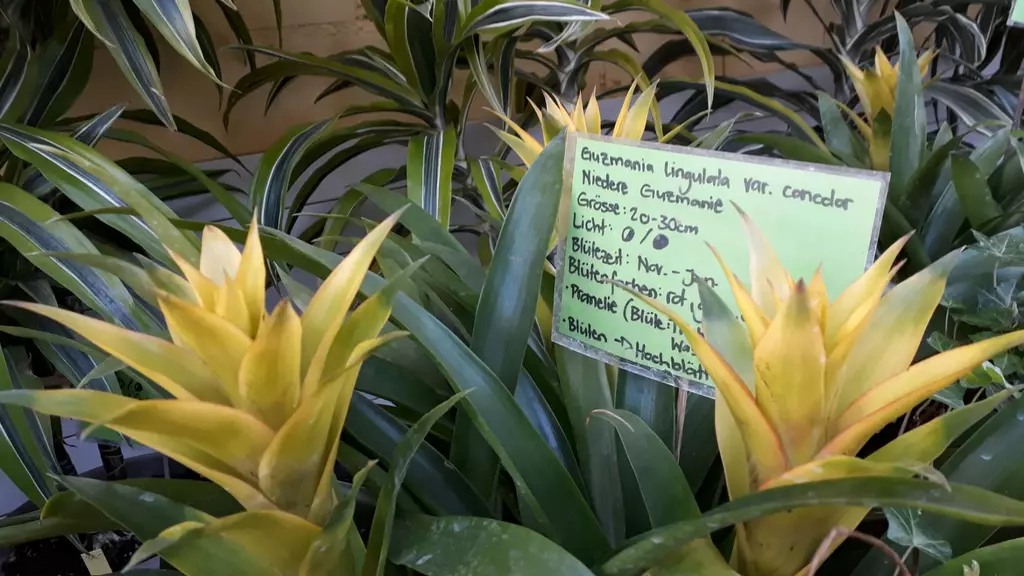 Guzmania Lingulata var. concolor
Niedere Guzmanie
Grösse: 20-30cm
Licht: /
Blütezeit: Nov. - Jan
Blütenfarben: rot
• Promelie
• Blüten → Hochblätt